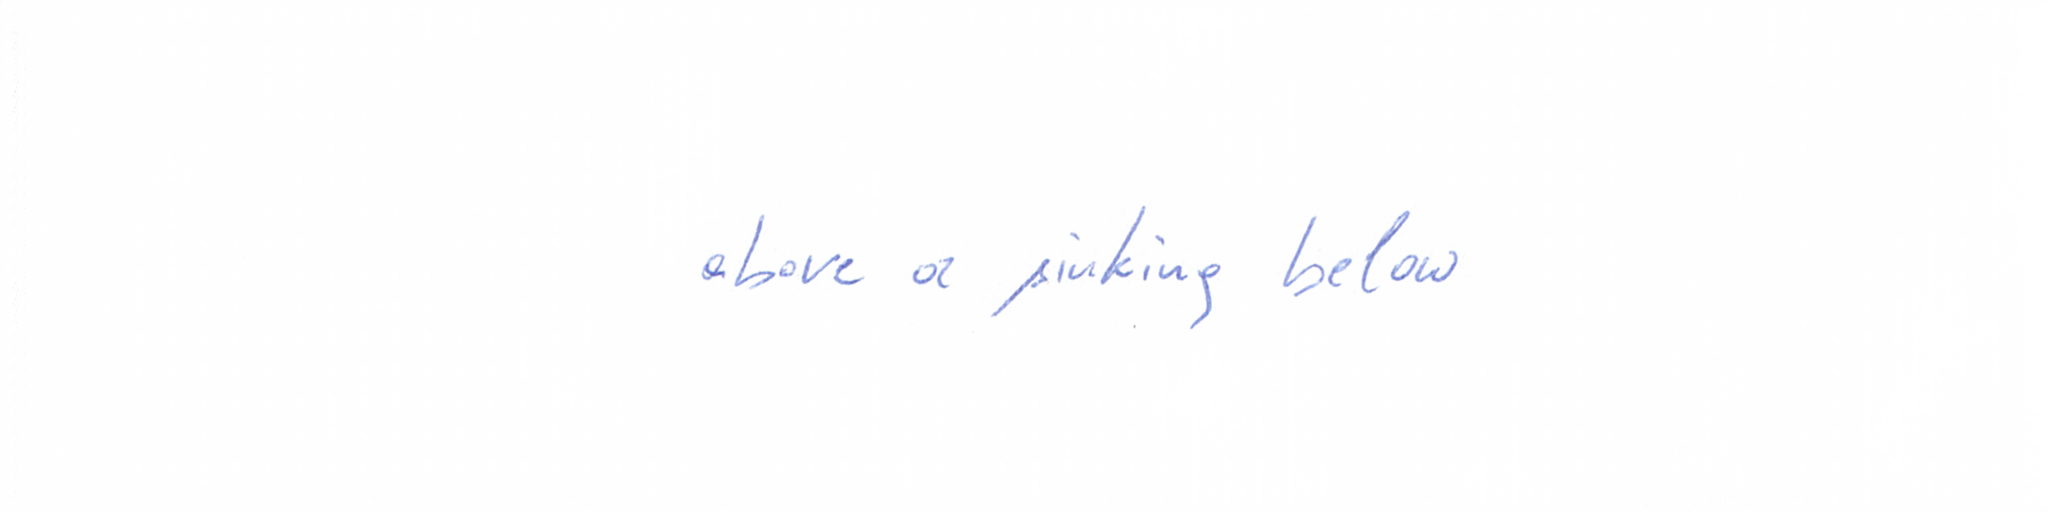 above a sinking below